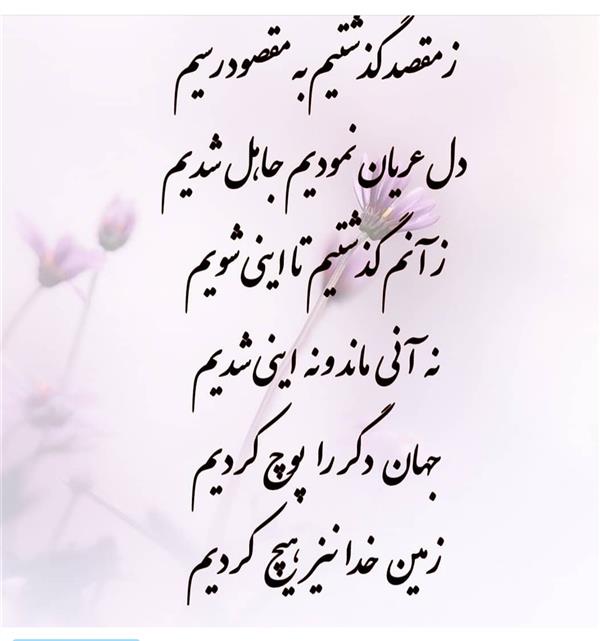 ز مقصد گذشتیم به مقصود رسیم
دل عریان نمودیم جاهل شدیم
ز آنم گذشتیم تا اینی شویم
نه آنی ماند و نه اینی شدیم
جهان دگر را پوچ کردیم
زمین خدا نیز هیچ کردیم